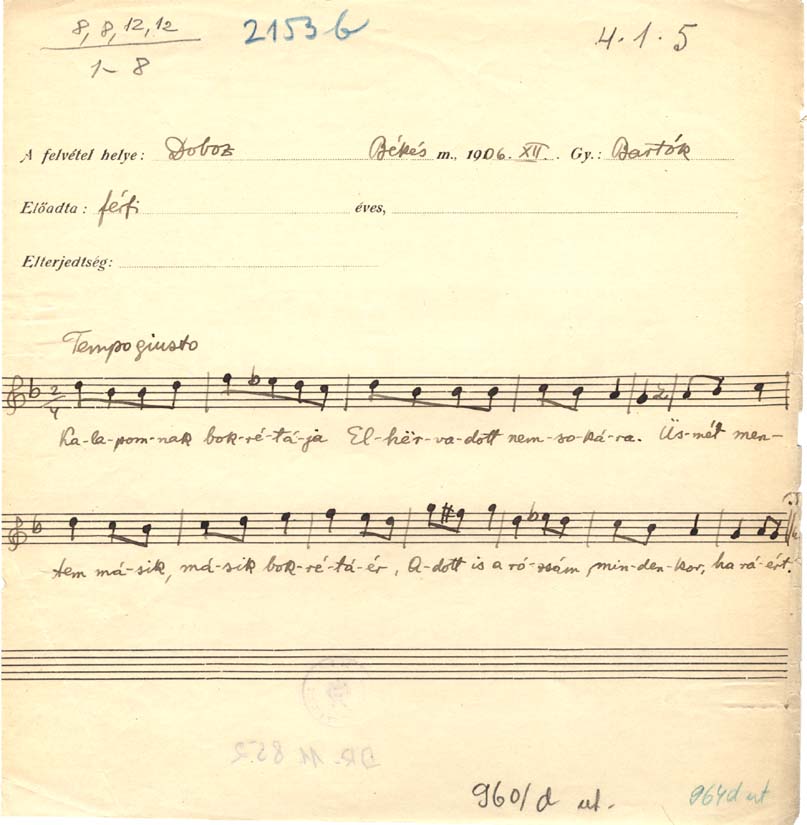 8, 8, 12, 12
2153 b
4.1.5
1-8
A felvétel helye: Doboz Békés m., 1906. XII. Gy.: Bartók
Előadta: férfi éves,
Elterjedtség:
Tempo giusto
2/4
Ka-la-pom-nak bok-ré-tá-ja El-hër-va-dott nem-so-ká-ra. Üs-mét men-
tem má-sik, má-sik bok-ré-tá-ér, A-dott is a ró-zsám, min-den-kor, ha rá-ért.
DR. 11 852
960/d ut.
964d ut